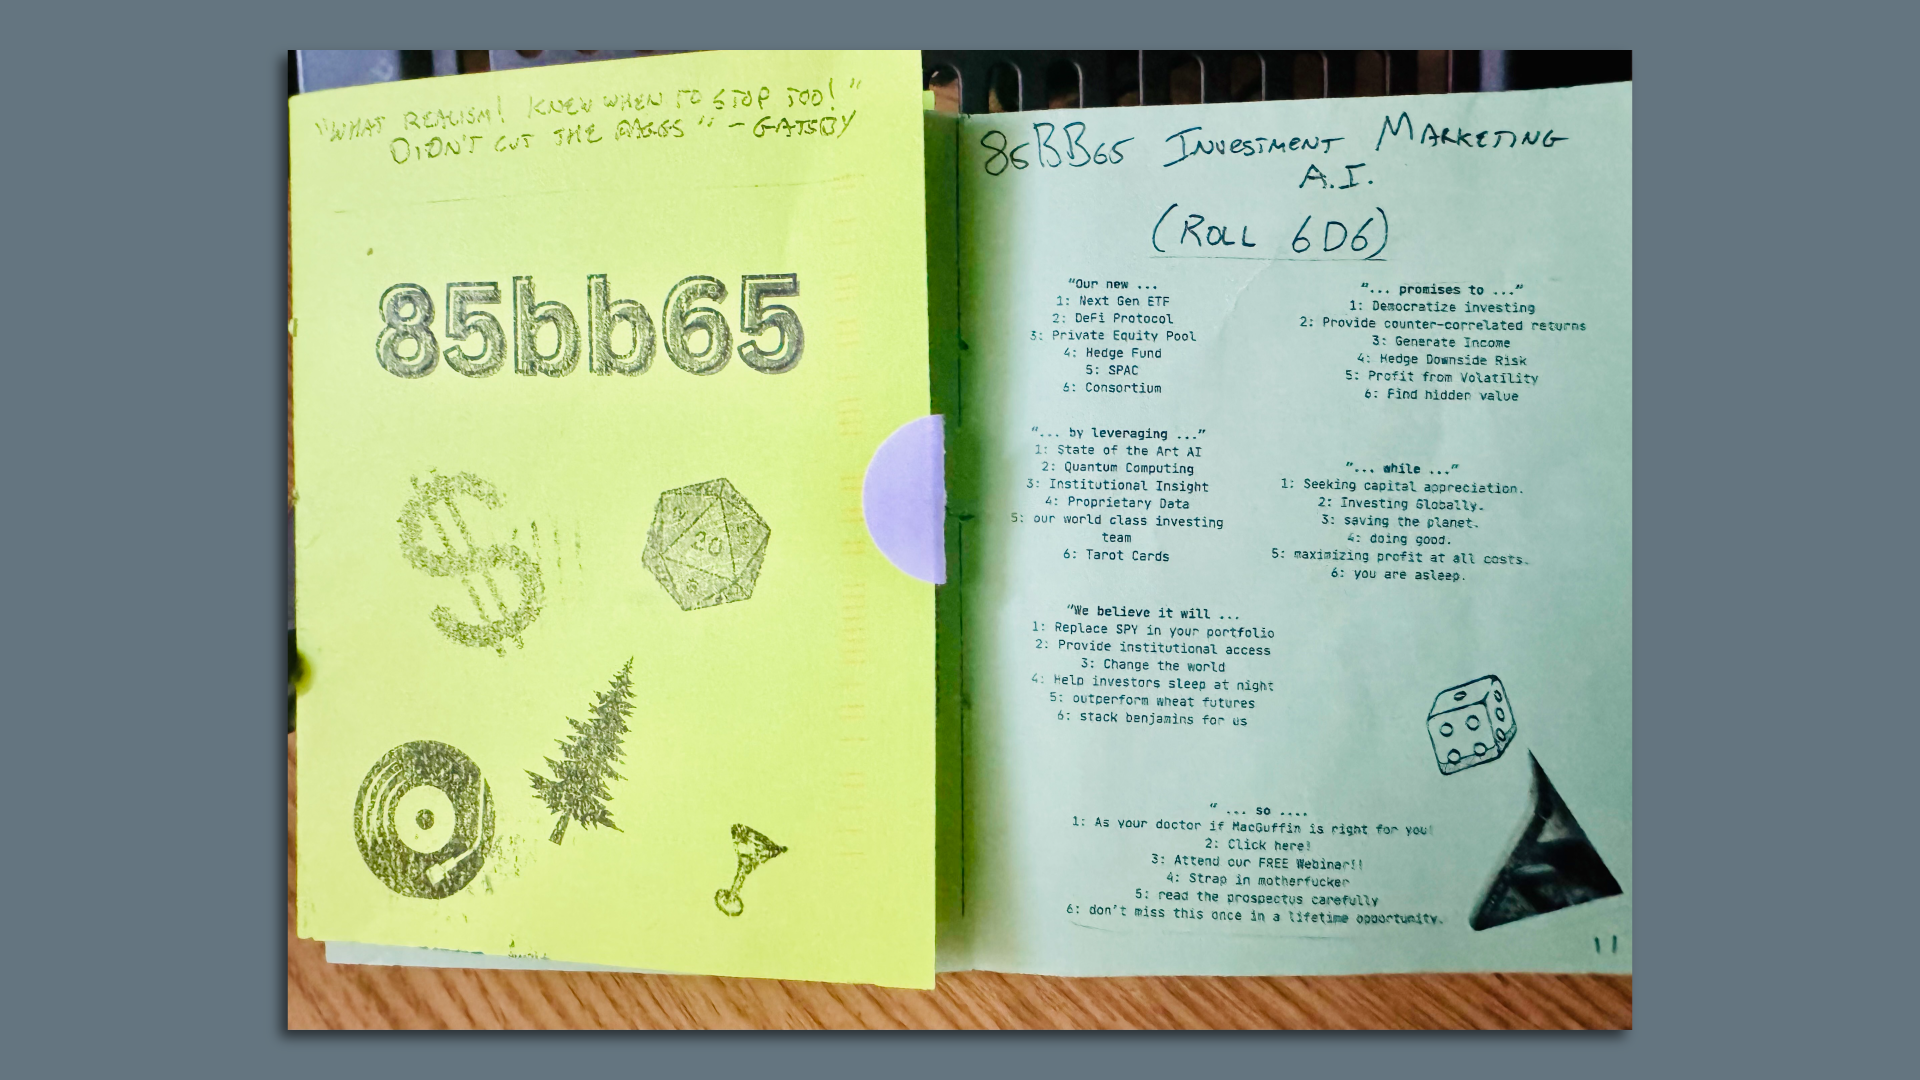 "WHAT REALISM! KNEW WHEN TO STOP TOO!"
DIDN'T CUT THE PAGES" - GATSBY
85bb65
20
85BB65 INVESTMENT MARKETING
A.I.
(ROLL 6D6)
"Our new ...
1: Next Gen ETF
2: DeFi Protocol
3: Private Equity Pool
4: Hedge Fund
5: SPAC
6: Consortium
"... promises to ..."
1: Democratize investing
2: Provide counter-correlated returns
3: Generate Income
4: Hedge Downside Risk
5: Profit from Volatility
6: Find hidden value
"... by leveraging ..."
1: State of the Art AI
2: Quantum Computing
3: Institutional Insight
4: Proprietary Data
5: our world class investing
team
6: Tarot Cards
"... while ..."
1: Seeking capital appreciation.
2: Investing Globally.
3: saving the planet.
4: doing good.
5: maximizing profit at all costs.
6: you are asleep.
"We believe it will ...
1: Replace SPY in your portfolio
2: Provide institutional access
3: Change the world
4: Help investors sleep at night
5: outperform wheat futures
6: stack benjamins for us
" ... so ....
1: As your doctor if MacGuffin is right for you!
2: Click here!
3: Attend our FREE Webinar!!
4: Strap in motherfucker
5: read the prospectus carefully
6: don't miss this once in a lifetime opportunity.
11